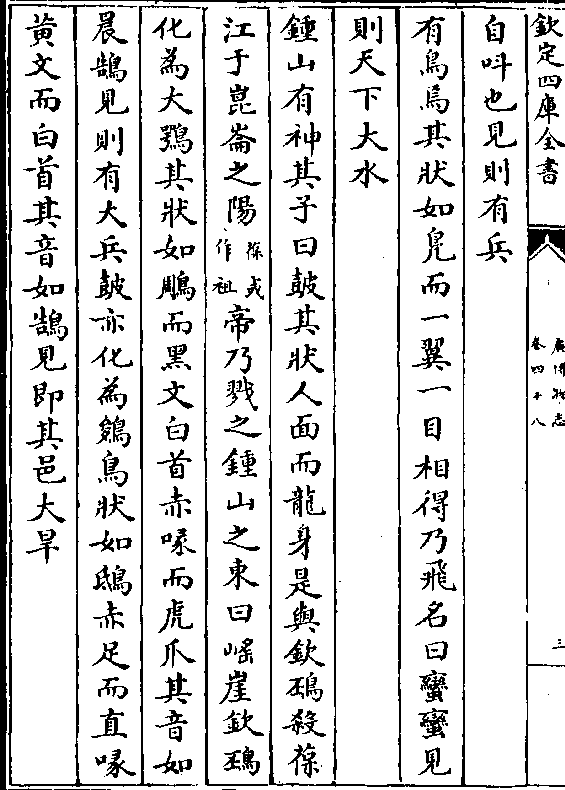 欽定四庫全書
廣博物志
卷四十八
三
自呌也見則有兵
有鳥焉其狀如鳬而一翼一目相得乃飛名曰蠻蠻見
則天下大水
鍾山有神其子曰皷其狀人面而龍身是與欽䲹殺葆
江于崑崙之陽葆或作祖帝乃戮之鍾山之東曰㟴崖欽䲹
化為大鶚其狀如鵰而黑文白首赤喙而虎爪其音如
晨鵠見則有大兵皷亦化為鵔鳥狀如鴟赤足而直喙
黄文而白首其音如鵠見即其邑大旱